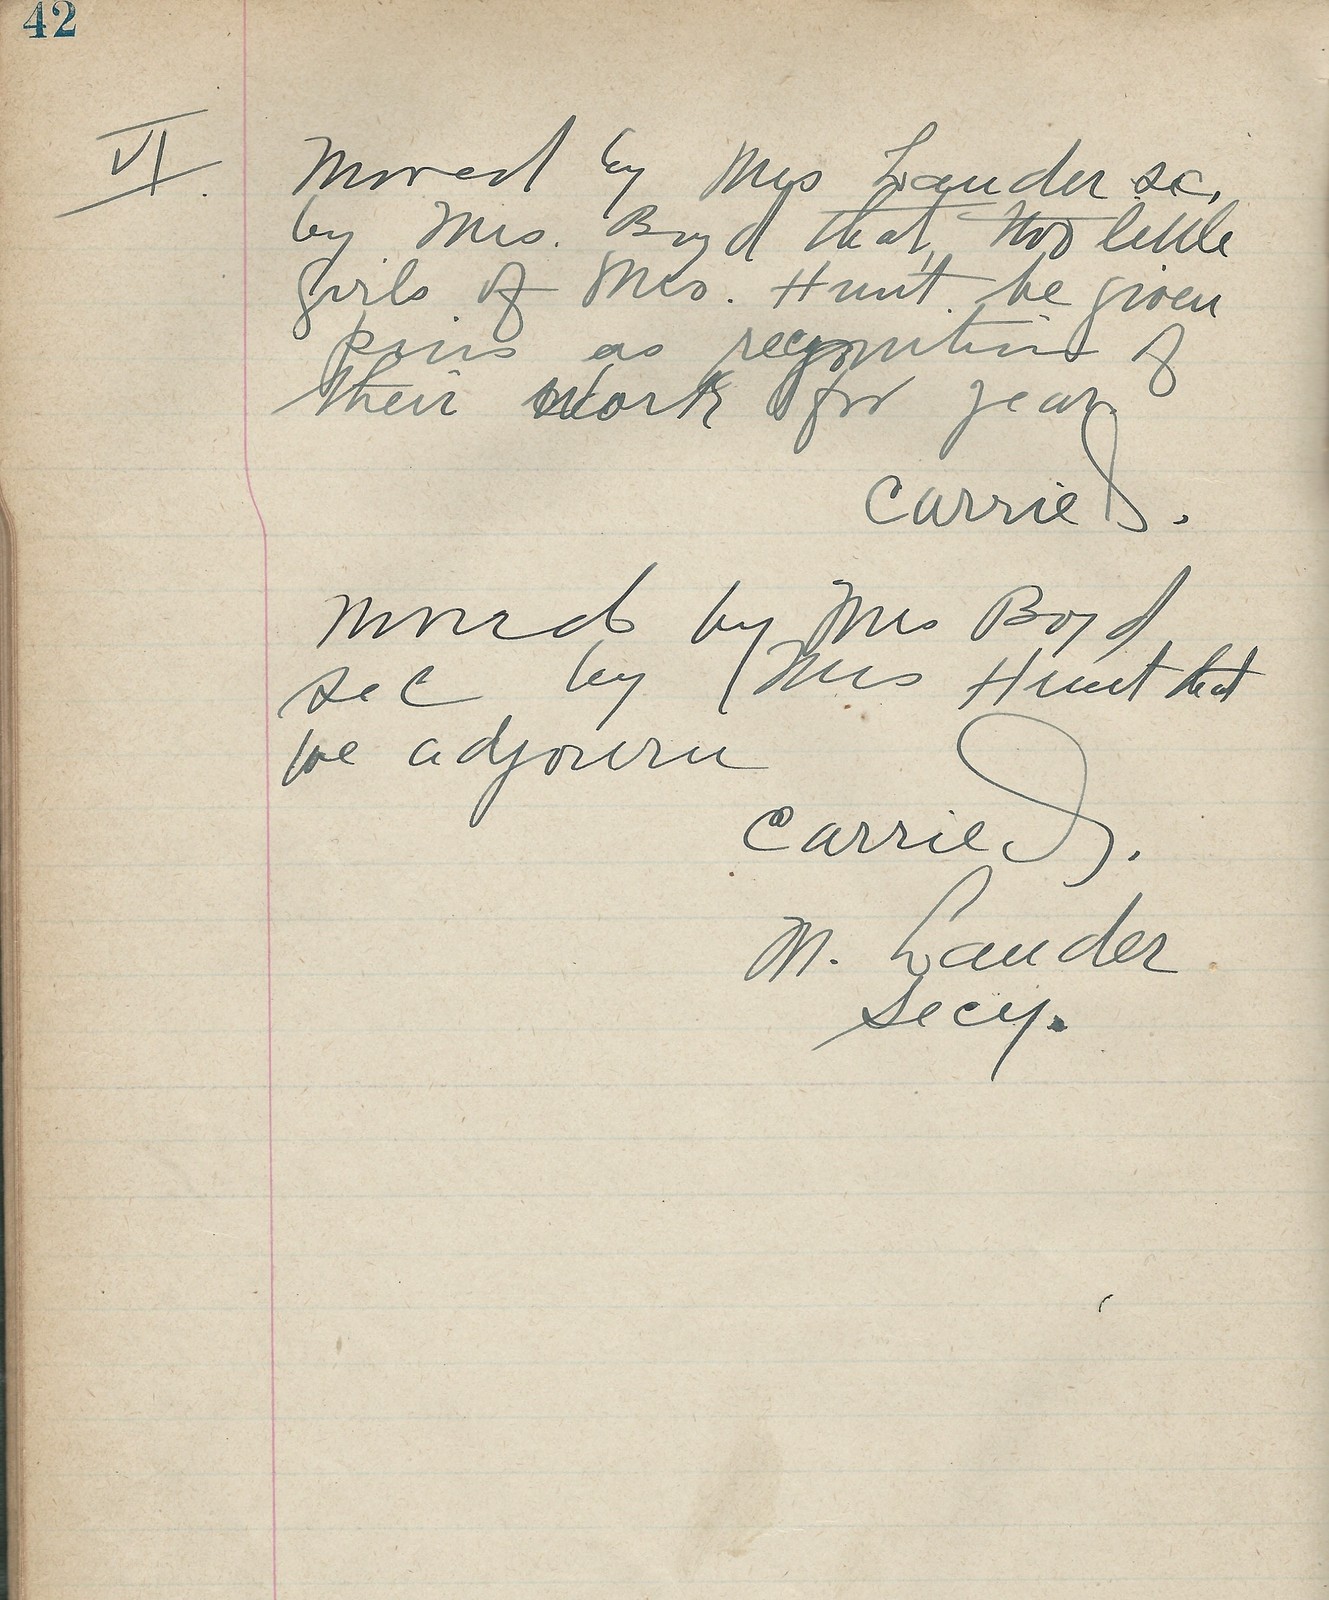 42
VI. Moved by Mrs Lauder sc,
by Mrs. Boyd that two little
girls of Mrs. Hunt be given
pins as recognition of
their work for year.
Carried.
Moved by Mrs Boyd
sec by Mrs Hunt that
we adjourn
Carried.
M. Lauder
Secy.